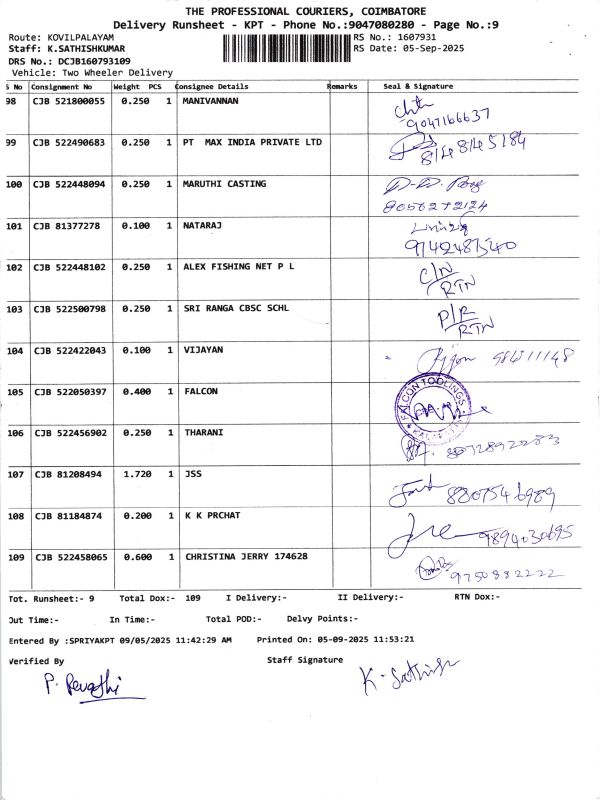 THE PROFESSIONAL COURIERS, COIMBATORE
Delivery Runsheet - KPT - Phone No.:9047080280 - Page No.:9
Route: KOVILPALAYAM RS No.: 1607931
Staff: K.SATHISHKUMAR RS Date: 05-Sep-2025
DRS No.: DCJB160793109
Vehicle: Two Wheeler Delivery
S No Consignment No Weight PCS Consignee Details Remarks Seal & Signature
98 CJB 521800055 0.250 1 MANIVANNAN
9047166637
99 CJB 522490683 0.250 1 PT MAX INDIA PRIVATE LTD
8148145184
100 CJB 522448094 0.250 1 MARUTHI CASTING
8056272124
101 CJB 81377278 0.100 1 NATARAJ
9742487540
102 CJB 522448102 0.250 1 ALEX FISHING NET P L C/N
RTN
103 CJB 522500798 0.250 1 SRI RANGA CBSC SCHL P/R
RTN
104 CJB 522422043 0.100 1 VIJAYAN
105 CJB 522050397 0.400 1 FALCON FALCON TOOLINGS
106 CJB 522456902 0.250 1 THARANI
107 CJB 81208494 1.720 1 JSS
108 CJB 81184874 0.200 1 K K PRCHAT
9894030695
109 CJB 522458065 0.600 1 CHRISTINA JERRY 174628
9750882222
Tot. Runsheet:- 9 Total Dox:- 109 I Delivery:- II Delivery:- RTN Dox:-
Out Time:- In Time:- Total POD:- Delvy Points:-
Entered By :SPRIYAKPT 09/05/2025 11:42:29 AM Printed On: 05-09-2025 11:53:21
Verified By Staff Signature
P. Revathi K. Sathish